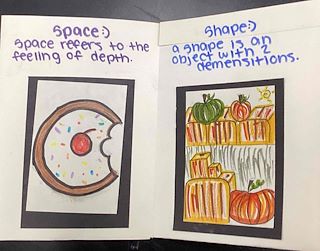 Space:)
Space refers to the
feeling of depth.
Shape:)
a shape is an
object with 2
demensitions.